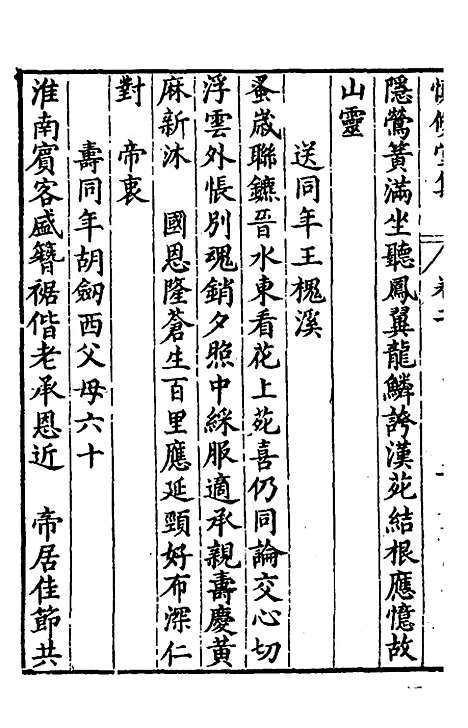 慎修堂集 卷二
隱鶯黃滿坐聽鳳翼龍鱗誇漢苑結根應憶故
山靈
送同年王槐溪
蚤歲聯鑣晉水東看花上苑喜仍同論交心切
浮雲外悵別魂銷夕照中綵服適承親壽慶黃
麻新沐　國恩隆蒼生百里應延頸好布深仁
對　帝衷
壽同年胡劒西父母六十
淮南賓客盛簪裾偕老承恩近　帝居佳節共